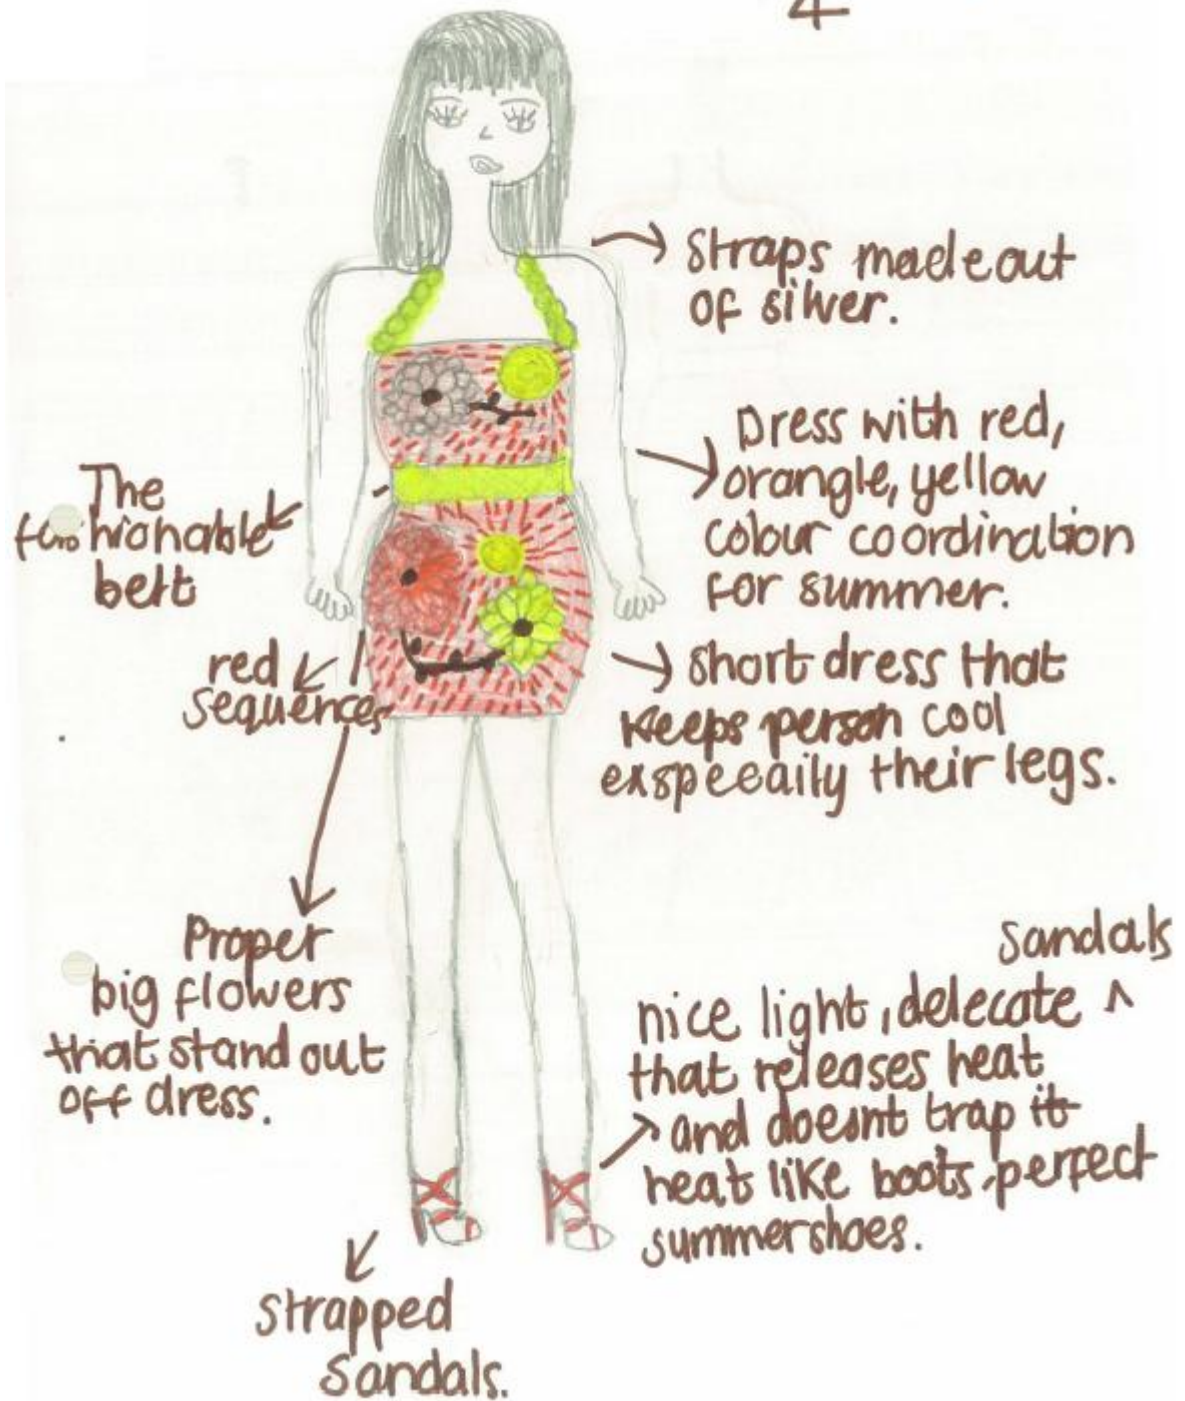 4
Straps made out
of silver.
Dress with red,
orangle, yellow
colour coordination
for summer.
The
fashionable
belt
red
sequences
short dress that
keeps person cool
exspecaily their legs.
Proper
big flowers
that stand out
off dress.
Sandals
nice light, delecate ^
that releases heat
and doesnt trap it
heat like boots, perfect
summershoes.
Strapped
Sandals.